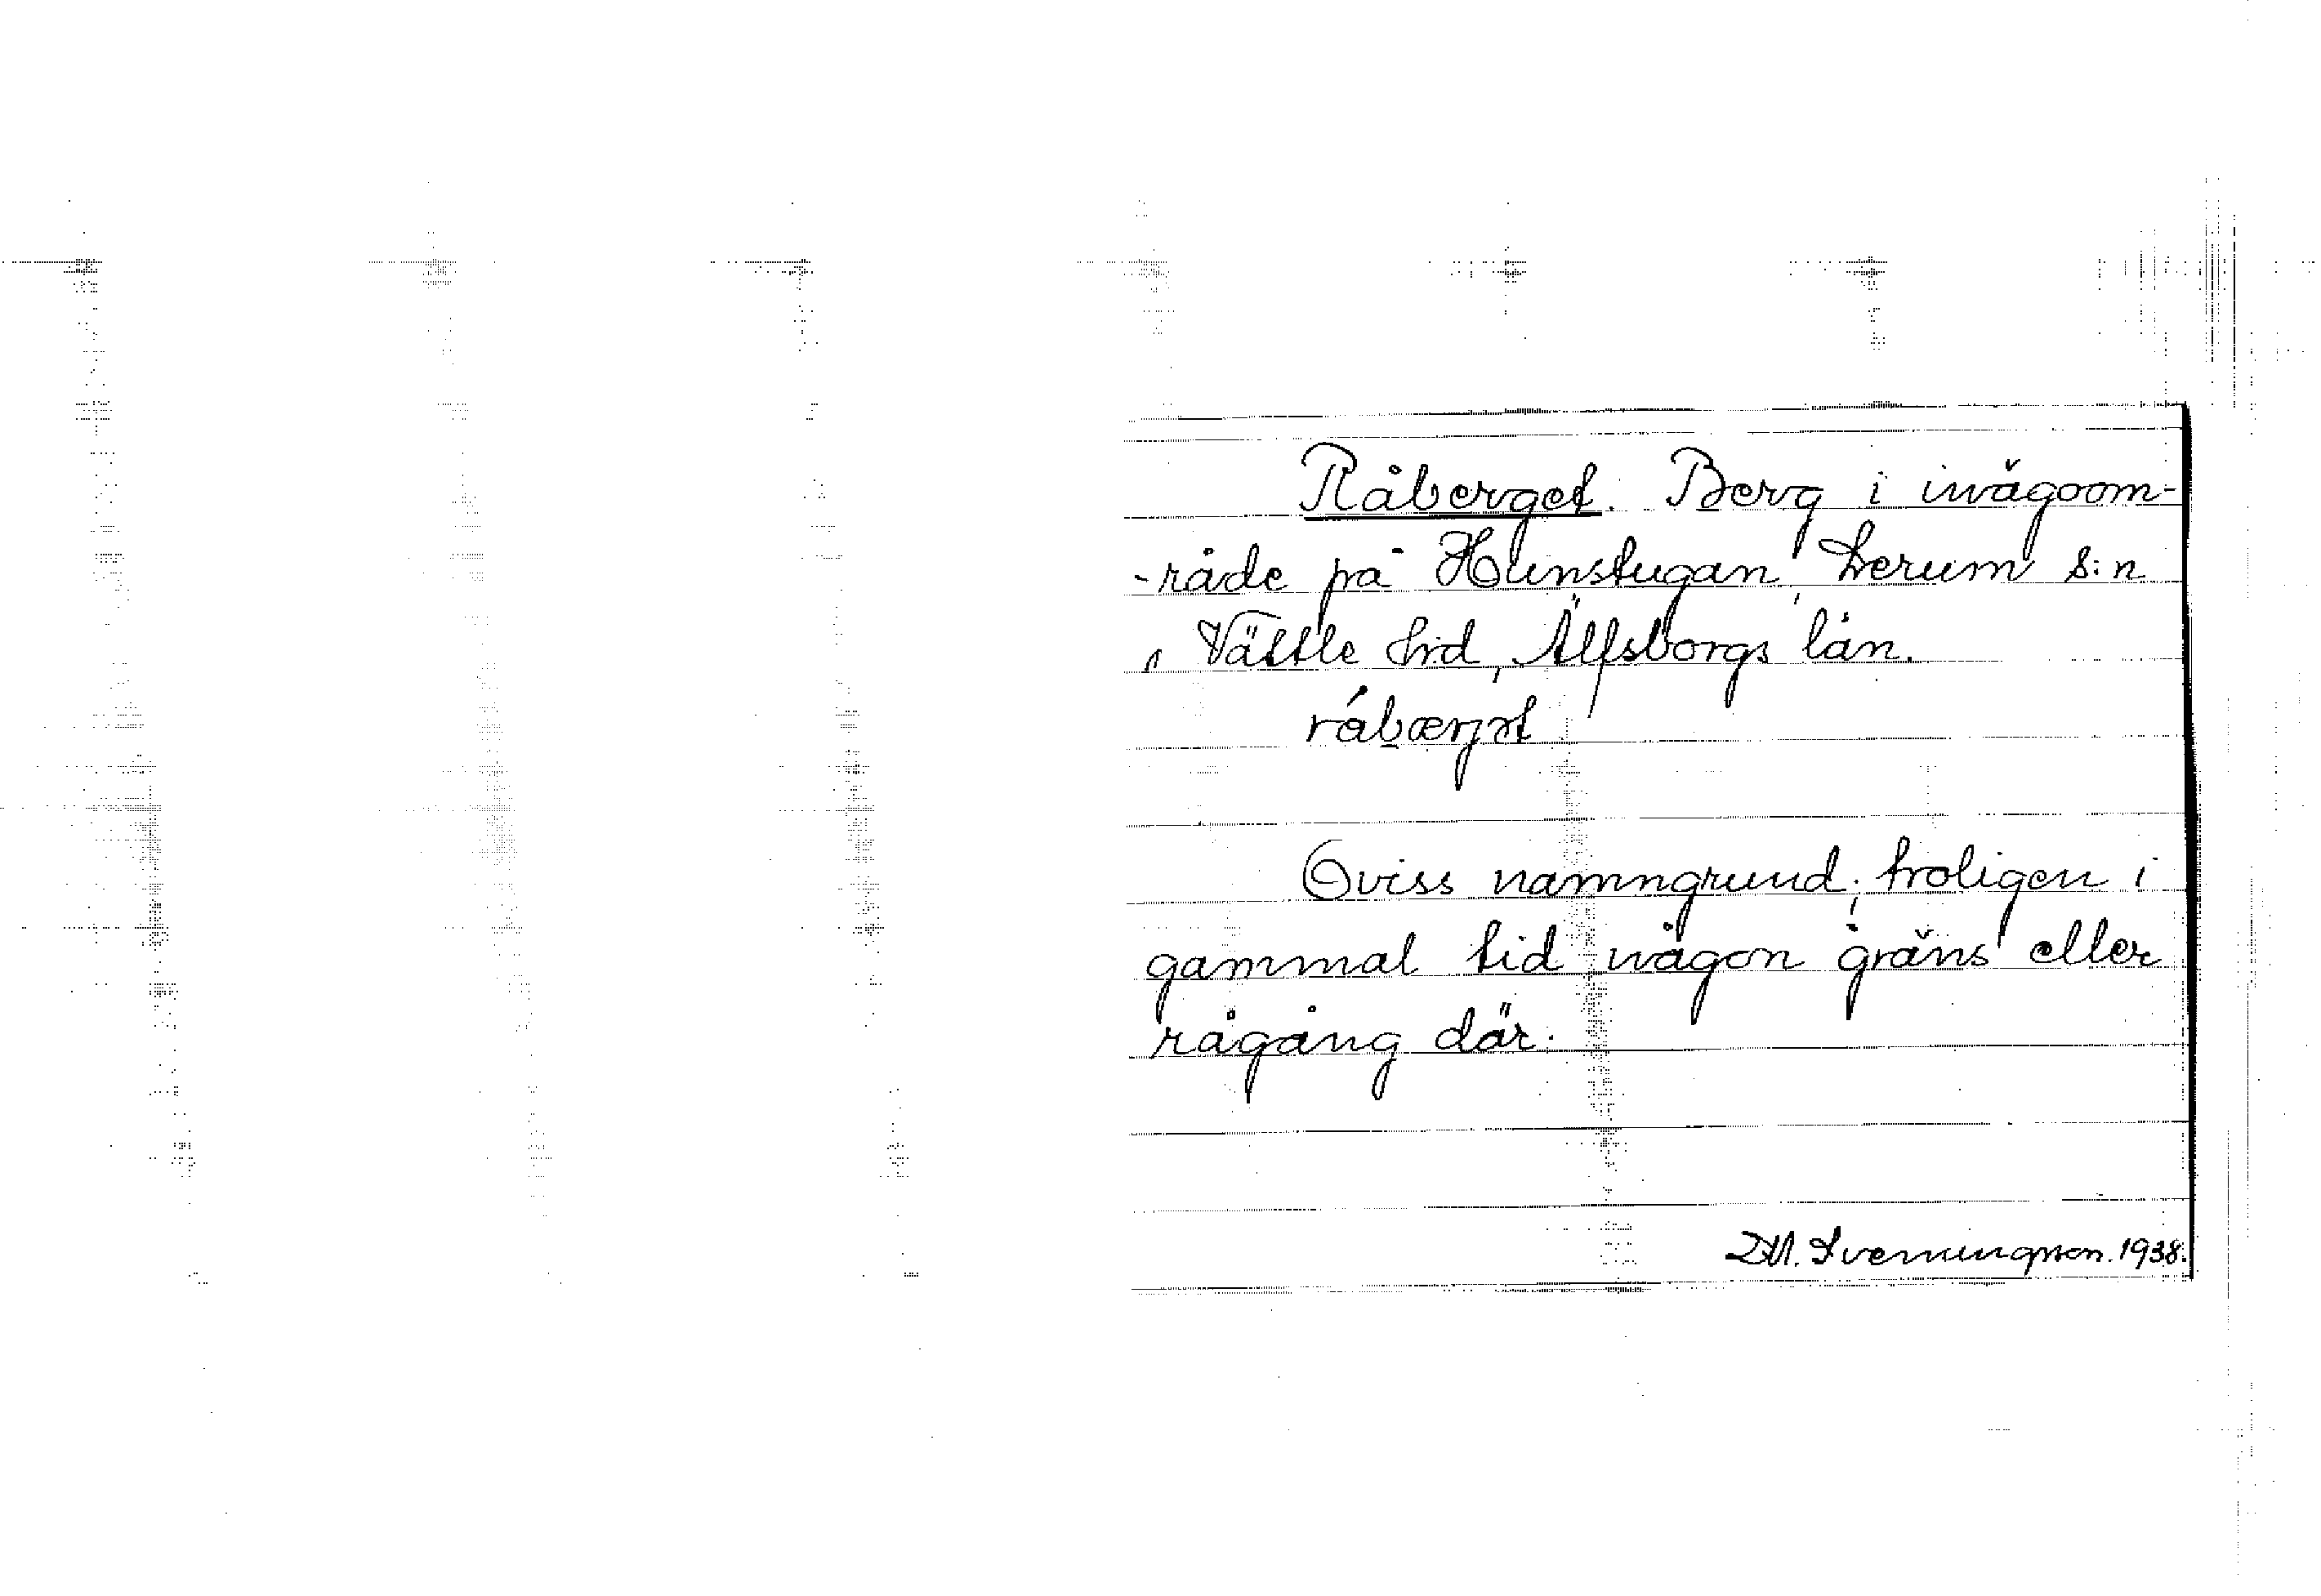 Råberget. Berg i inägoom-
-råde på Hunstugan, Lerum s:n
, Vättle hrd, Älfsborgs län.
råbærjət
Oviss namngrund; troligen i
gammal tid någon gräns eller
rågång där.
D.M. Sverningsson. 1938.